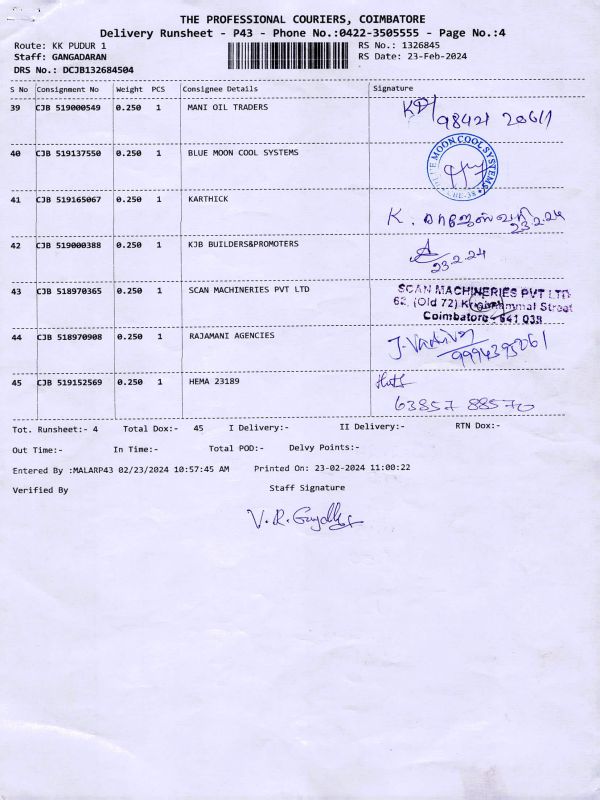 THE PROFESSIONAL COURIERS, COIMBATORE
Delivery Runsheet - P43 - Phone No.:0422-3505555 - Page No.:4
Route: KK PUDUR 1 RS No.: 1326845
Staff: GANGADARAN RS Date: 23-Feb-2024
DRS No.: DCJB132684504
S No Consignment No Weight PCS Consignee Details Signature
39 CJB 519000549 0.250 1 MANI OIL TRADERS
40 CJB 519137550 0.250 1 BLUE MOON COOL SYSTEMS
MOON COOL SYSTEMS
41 CJB 519165067 0.250 1 KARTHICK
K. ராஜேஸ்வரி 23.2.24
42 CJB 519000388 0.250 1 KJB BUILDERS&PROMOTERS
23.2.24
43 CJB 518970365 0.250 1 SCAN MACHINERIES PVT LTD
SCAN MACHINERIES PVT LTD
62, (Old 72) Street
Coimbatore - 641 038
44 CJB 518970908 0.250 1 RAJAMANI AGENCIES
45 CJB 519152569 0.250 1 HEMA 23189
63857 88570
Tot. Runsheet:- 4 Total Dox:- 45 I Delivery:- II Delivery:- RTN Dox:-
Out Time:- In Time:- Total POD:- Delvy Points:-
Entered By :MALARP43 02/23/2024 10:57:45 AM Printed On: 23-02-2024 11:00:22
Verified By Staff Signature